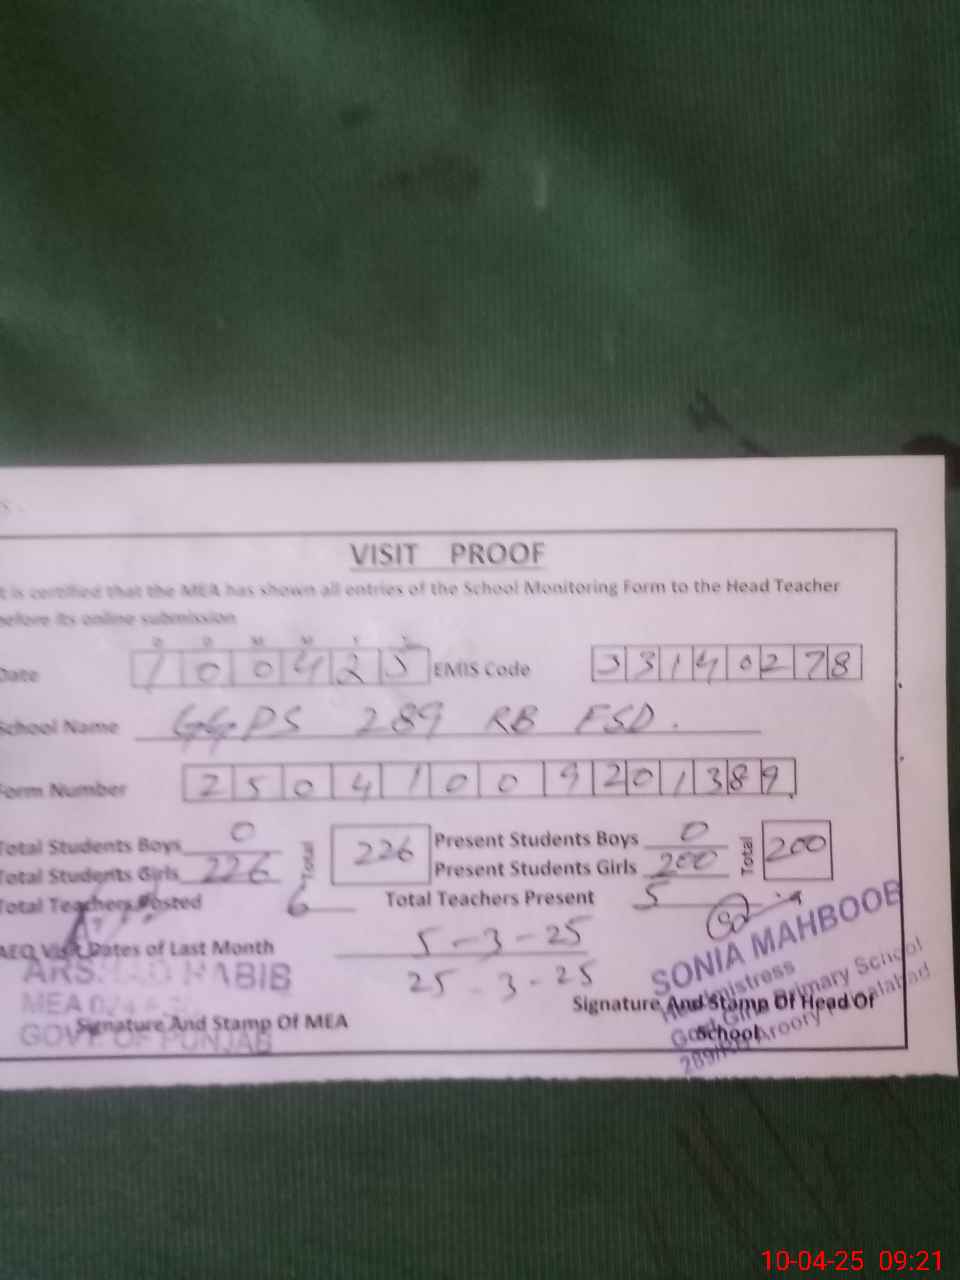 VISIT PROOF
t is certified that the MEA has shown all entries of the School Monitoring Form to the Head Teacher
before its online submission
D D M M Y Y
Date 1 0 0 4 2 5 EMIS Code 3 3 1 4 0 2 7 8
School Name GGPS 289 RB FSD.
Form Number 2 5 0 4 1 0 0 9 2 0 1 3 8 9
Total Students Boys 0 Total 226 Present Students Boys 0 Total 200
Total Students Girls 226 Present Students Girls 200
Total Teachers Posted 6 Total Teachers Present 5
AEO Visit Dates of Last Month 5-3-25
25-3-25
HABIB
MEA
GOVT. OF PUNJAB
Signature And Stamp Of MEA
SONIA MAHBOOB
Headmistress
Govt Girls Primary School
289/RB Aroory Faisalabad
Signature And Stamp Of Head Of
School
10-04-25 09:21